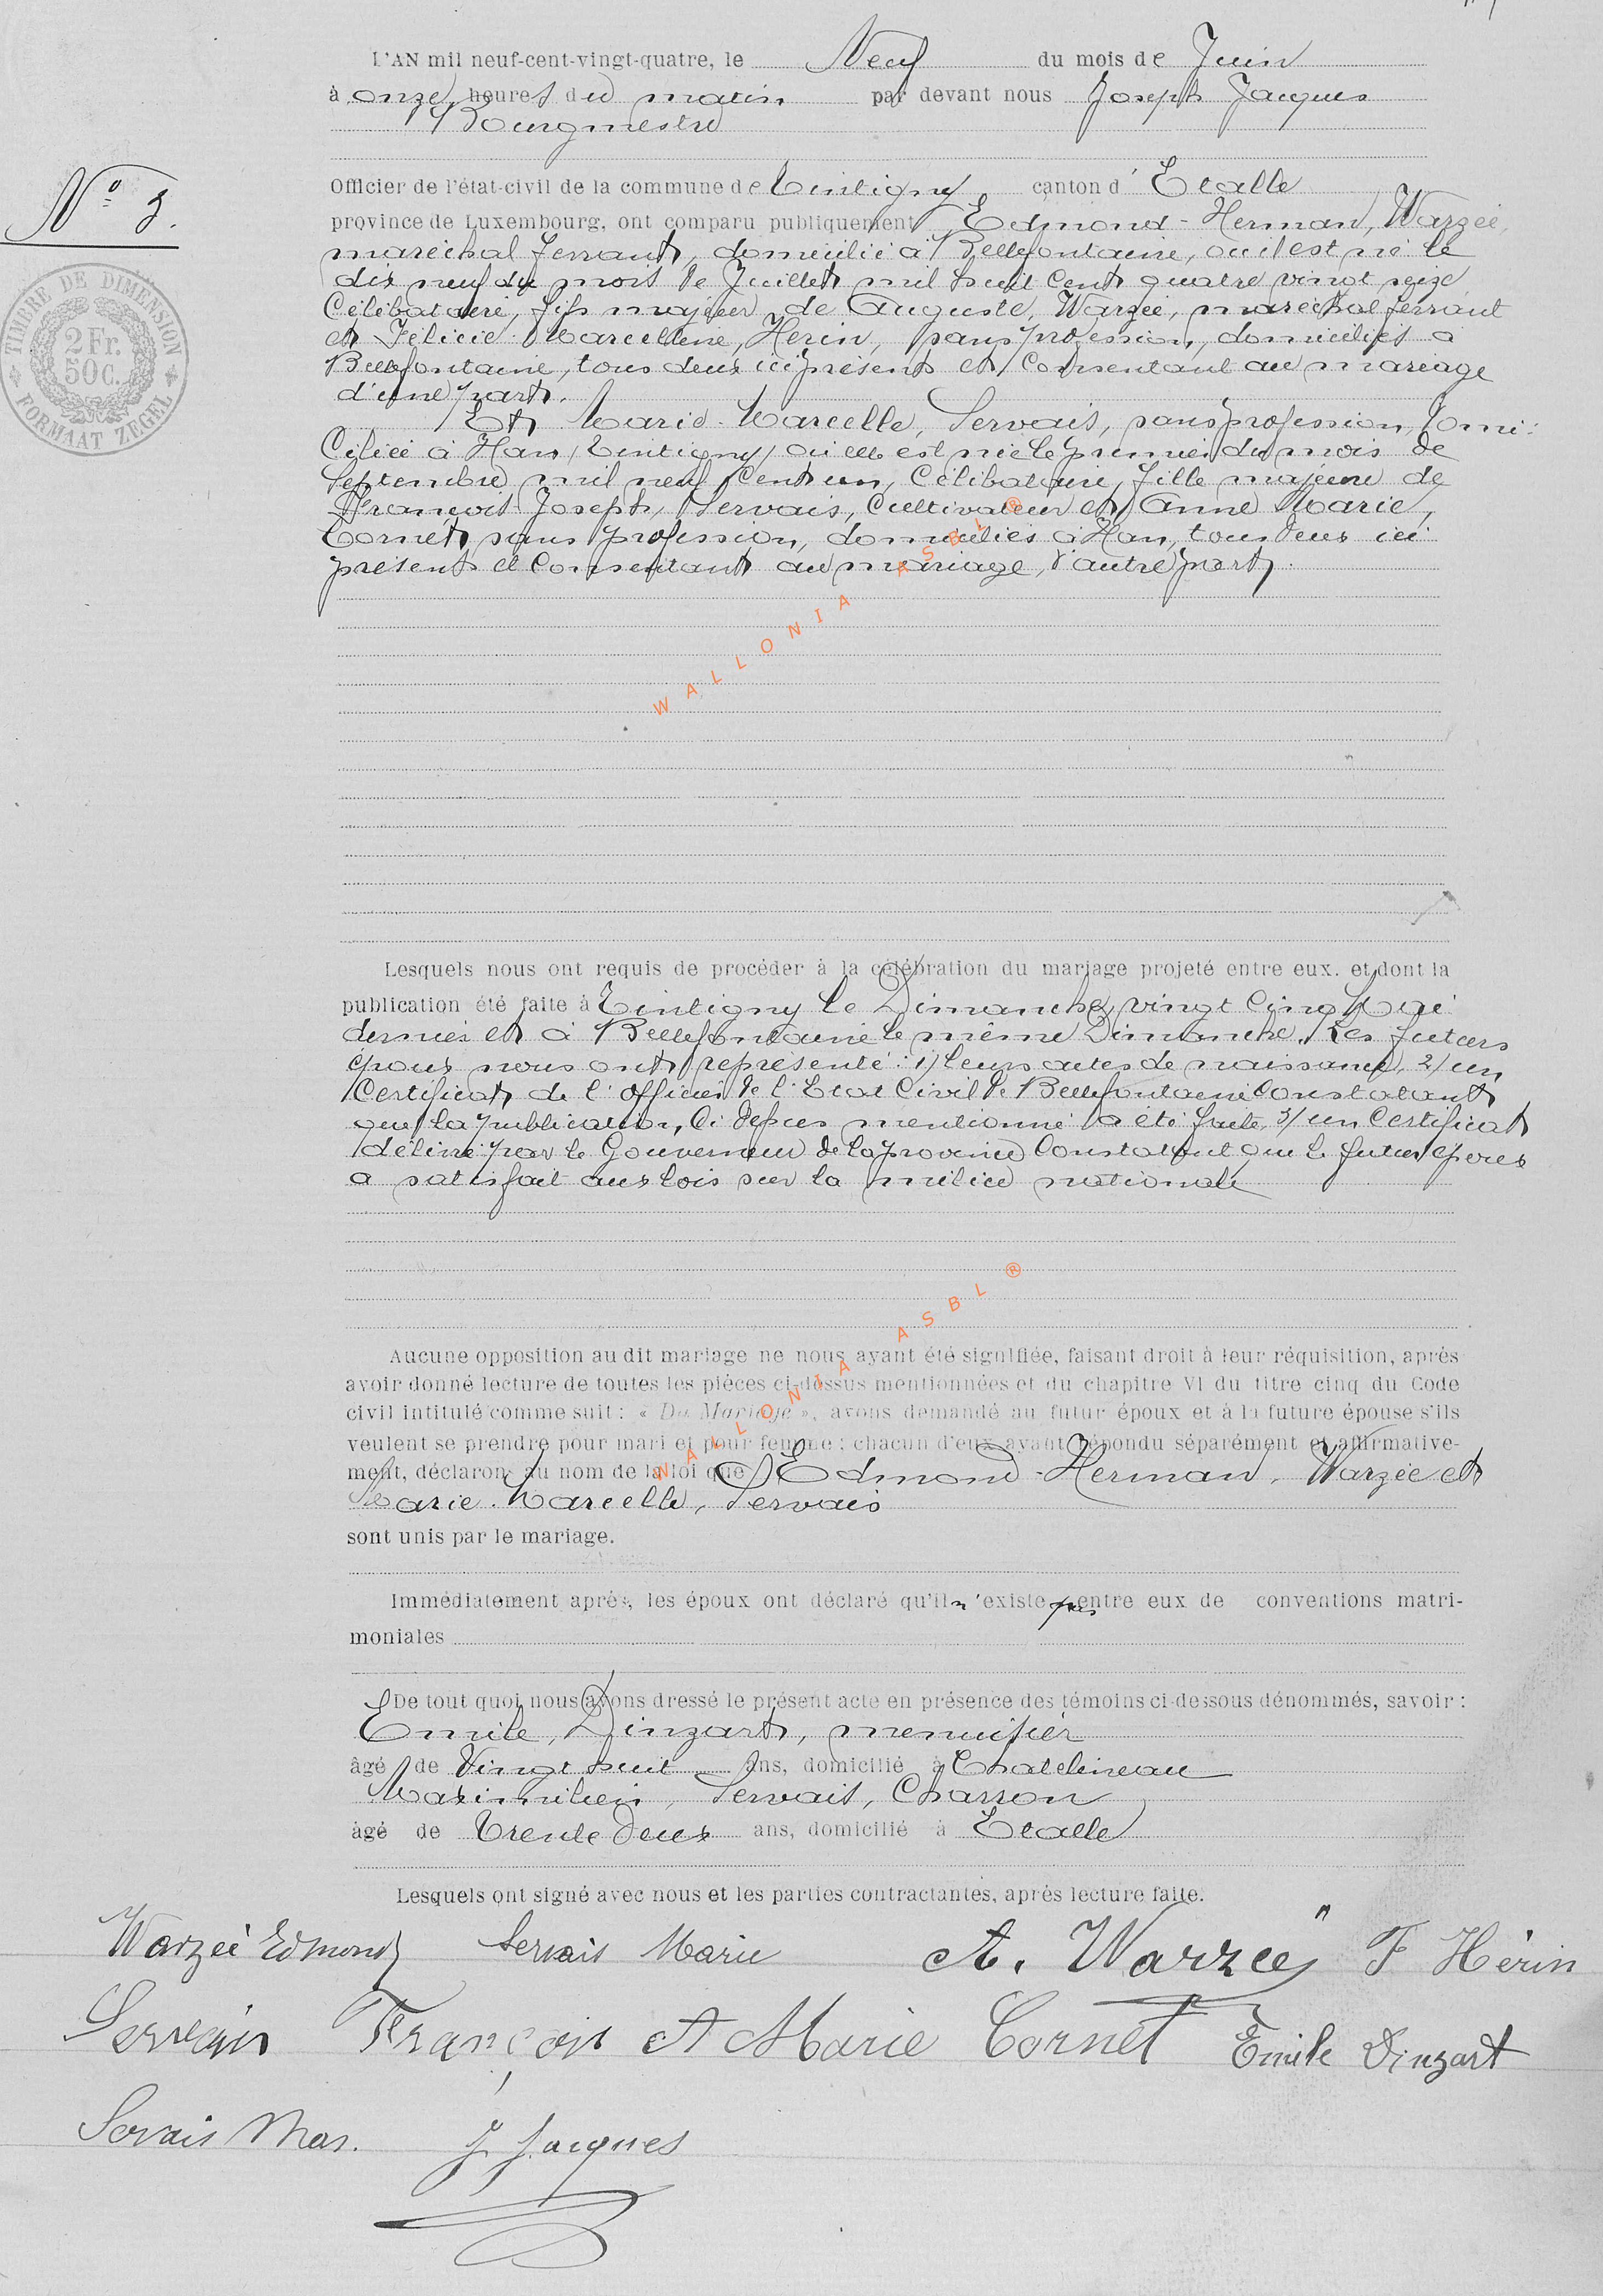 L'AN mil neuf-cent-vingt-quatre, le Neuf du mois de Juin
à onze heures du matin par devant nous Joseph Jacques
Bourgmestre
Officier de l'état-civil de la commune de Tintigny, canton d' Etalle
N° 3.
province de Luxembourg, ont comparu publiquement Edmond-Herman, Warzée,
maréchal ferrant, domicilié à Bellefontaine, où il est né le
dix neuf du mois de Juillet mil huit cent quatre vingt seize
Célibataire, fils majeur de Auguste, Warzée, maréchal ferrant
et Félicie Marcelline, Herin, sans profession, domiciliés à
Bellefontaine, tous deux ici présents et consentant au mariage
d'une part.
Et Marie-Marcelle, Servais, sans profession, domi-
ciliée à Han (Tintigny) où elle est née le premier du mois de
Septembre mil neuf cent un, Célibataire, fille majeure de
François-Joseph, Servais, Cultivateur et Anne Marie,
Cornet, sans profession, domiciliés à Han, tous deux ici
présents et consentant au mariage, d'autre part.
TIMBRE DE DIMENSION
2 Fr.
50 C.
FORMAAT ZEGEL
WALLONIA ASBL ®
Lesquels nous ont requis de procéder à la célébration du mariage projeté entre eux. et dont la
publication été faite à Tintigny le Dimanche, vingt cinq Mai
dernier et à Bellefontaine le même Dimanche. Les futurs
époux nous ont représenté: 1) leurs actes de naissance, 2) un
Certificat de l'Officier de l'Etat Civil de Bellefontaine constatant
que la publication, ci dessus mentionné a été faite, 3) un Certificat
délivré par le Gouverneur de la province constatant que le futur époux
a satisfait aux lois sur la milice nationale
WALLONIA ASBL ®
Aucune opposition au dit mariage ne nous ayant été signifiée, faisant droit à leur réquisition, après
avoir donné lecture de toutes les pièces ci-dessus mentionnées et du chapitre VI du titre cinq du Code
civil intitulé comme suit: « Du Mariage », avons demandé au futur époux et à la future épouse s'ils
veulent se prendre pour mari et pour femme; chacun d'eux ayant répondu séparément et affirmative-
ment, déclarons au nom de la loi que Edmond-Herman, Warzée et
Marie-Marcelle, Servais
sont unis par le mariage.
Immédiatement après, les époux ont déclaré qu'il n'existe pas entre eux de conventions matri-
moniales
De tout quoi nous avons dressé le présent acte en présence des témoins ci-dessous dénommés, savoir:
Emile, Dinzart, menuisier
âgé de Vingt huit ans, domicilié à Chatelineau
Maximilien, Servais, Charron
âgé de Trente deux ans, domicilié à Etalle
Lesquels ont signé avec nous et les parties contractantes, après lecture faite.
Warzée Edmond Servais Marie A. Warzée F Hérin
Servais François A Marie Cornet Emile Dinzart
Servais Max. J. Jacques